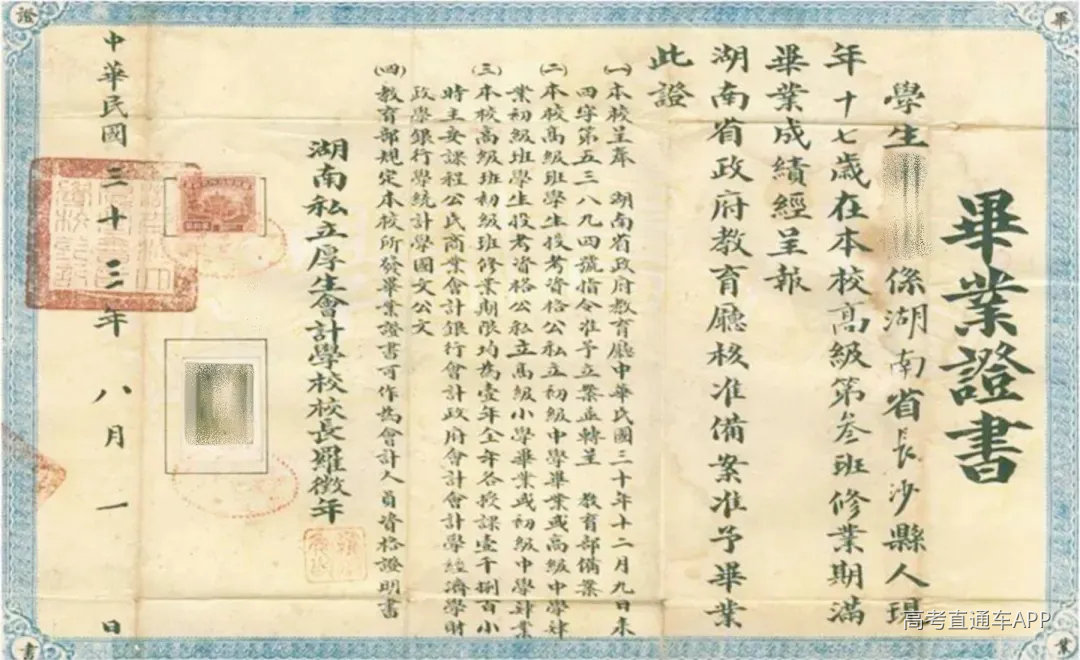 畢業證書
學生
係湖南省長沙縣人現
年十七歲在本校高級第叁班修業期滿
畢業成績經呈報
湖南省政府教育廳核准備案准予畢業
此證
㈠本校呈奉 湖南省政府教育廳中華民國三十年十二月九日未
四字第五三八九四號指令准予立案並轉呈 教育部備案
㈡本校高級班學生投考資格公私立初級中學畢業或高級中學肄
業初級班學生投考資格公私立高級小學畢業或初級中學肄業
㈢本校高級班初級班修業期限均為壹年全年各授課壹千捌百小
時主要課程公民商業會計銀行會計政府會計會計學經濟學財
政學銀行學統計學國文公文
㈣教育部規定本校所發畢業證書可作為會計人員資格證明書
湖南私立厚生會計學校校長羅徵年
中華民國三十三年八月一日
畢
業
證
書
高考直通车APP